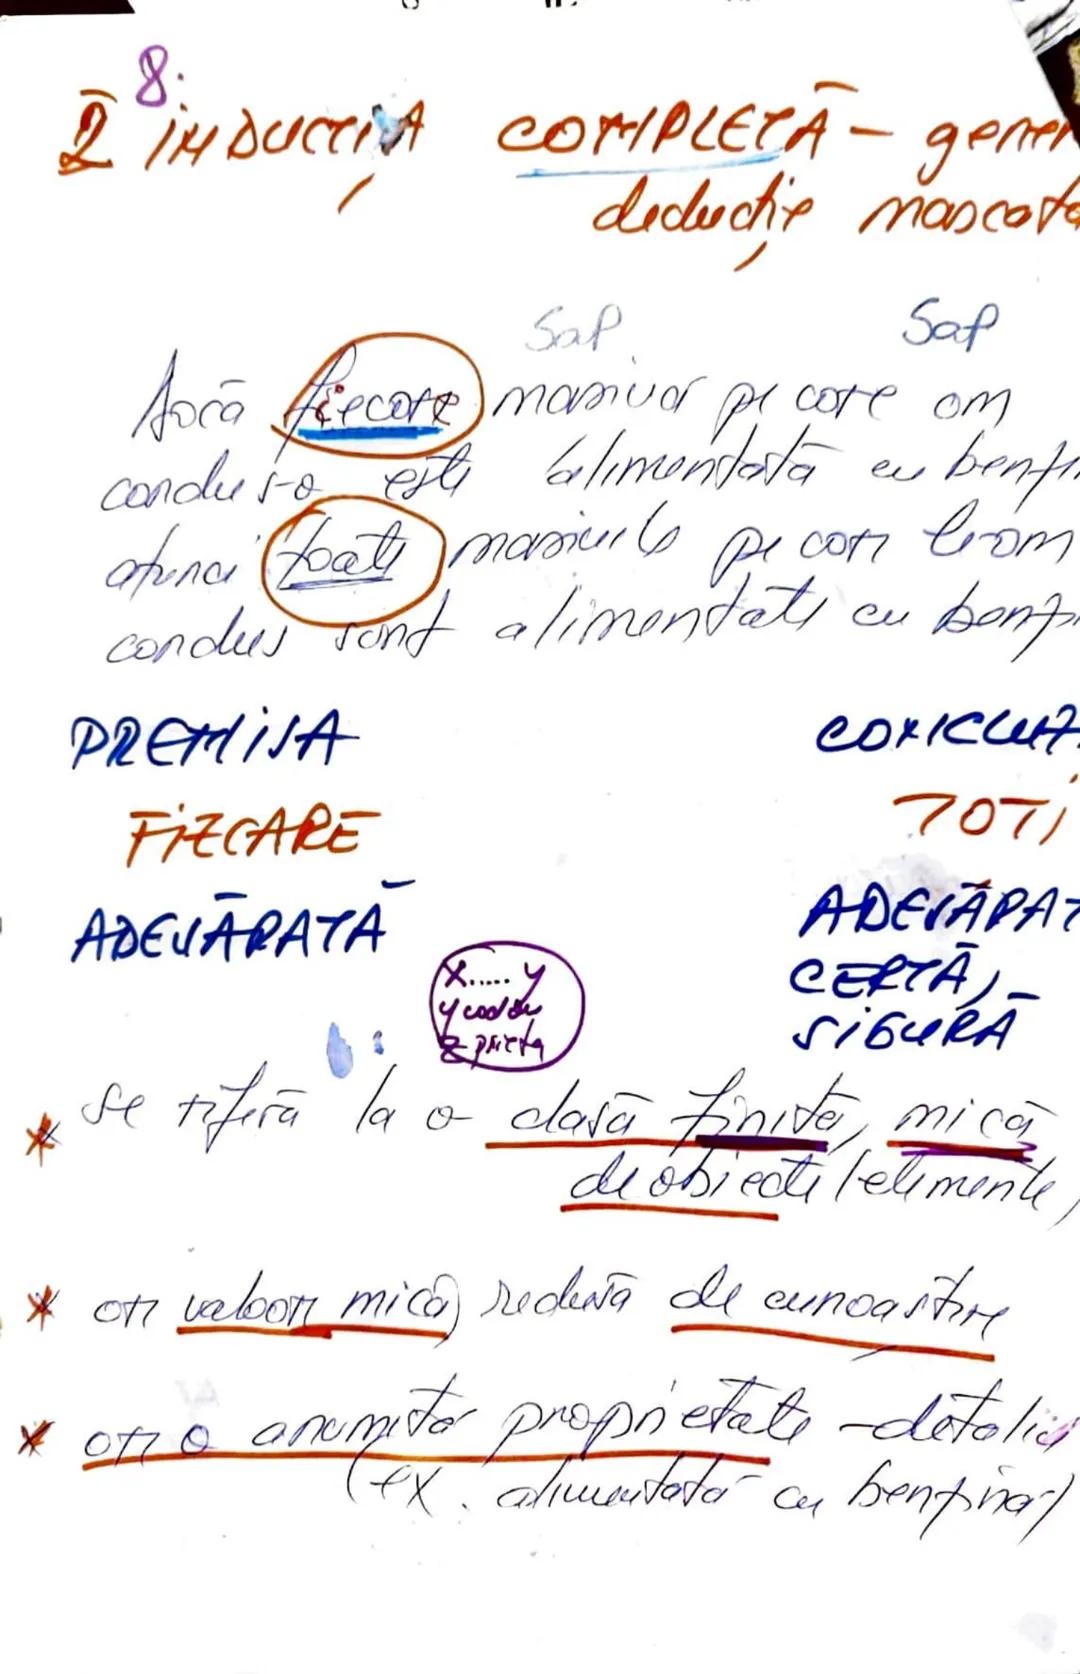 8.
2 INDUCȚIA COMPLETĂ - gener
deducție mascata
SaP SaP
Dacă fiecare mașină pe care am
condus-o este alimentată cu benzi
atunci toate mașinile pe care le-am
condus sunt alimentate cu benzi
PREMISA CONCLUZ
FIECARE TOȚI
ADEVĂRATĂ ADEVĂRAT
CERTĂ,
SIGURĂ
X..... Y
Y
Z
* se referă la o clasă finită, mică
de obiecte /elemente
* are valoare mică, redusă de cunoaștere
* are o anumită proprietate - detaliu
(ex. alimentată cu benzină)